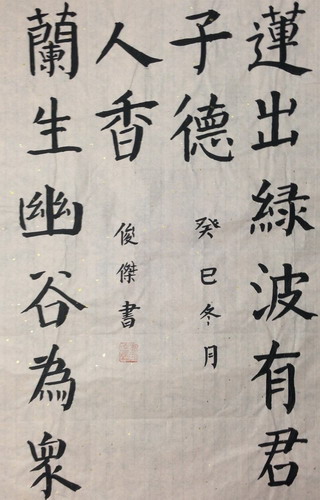 蓮出緑波有君
子德
癸巳冬月
蘭生幽谷為衆
人香
俊傑書